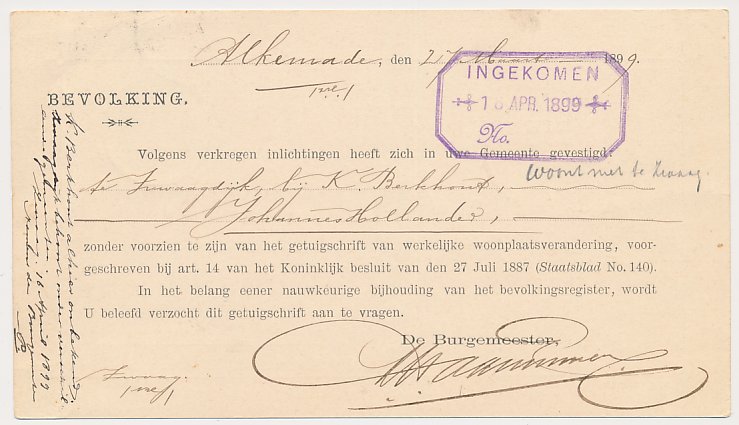 Alkemade, den 27 Maart 1899.
INGEKOMEN
18 APR. 1899
No.
BEVOLKING.
Volgens verkregen inlichtingen heeft zich in uwe Gemeente gevestigd:
woont niet te Zwaag.
te Zwaagdijk, bij K. Berkhout,
Johannes Hollander,
zonder voorzien te zijn van het getuigschrift van werkelijke woonplaatsverandering, voor-
geschreven bij art. 14 van het Koninklijk besluit van den 27 Juli 1887 (Staatsblad No. 140).
In het belang eener nauwkeurige bijhouding van het bevolkingsregister, wordt
U beleefd verzocht dit getuigschrift aan te vragen.
De Burgemeester,
Zwaag.
K. Berkhout alhier onbekend.
Zwaag, 16 April 1899